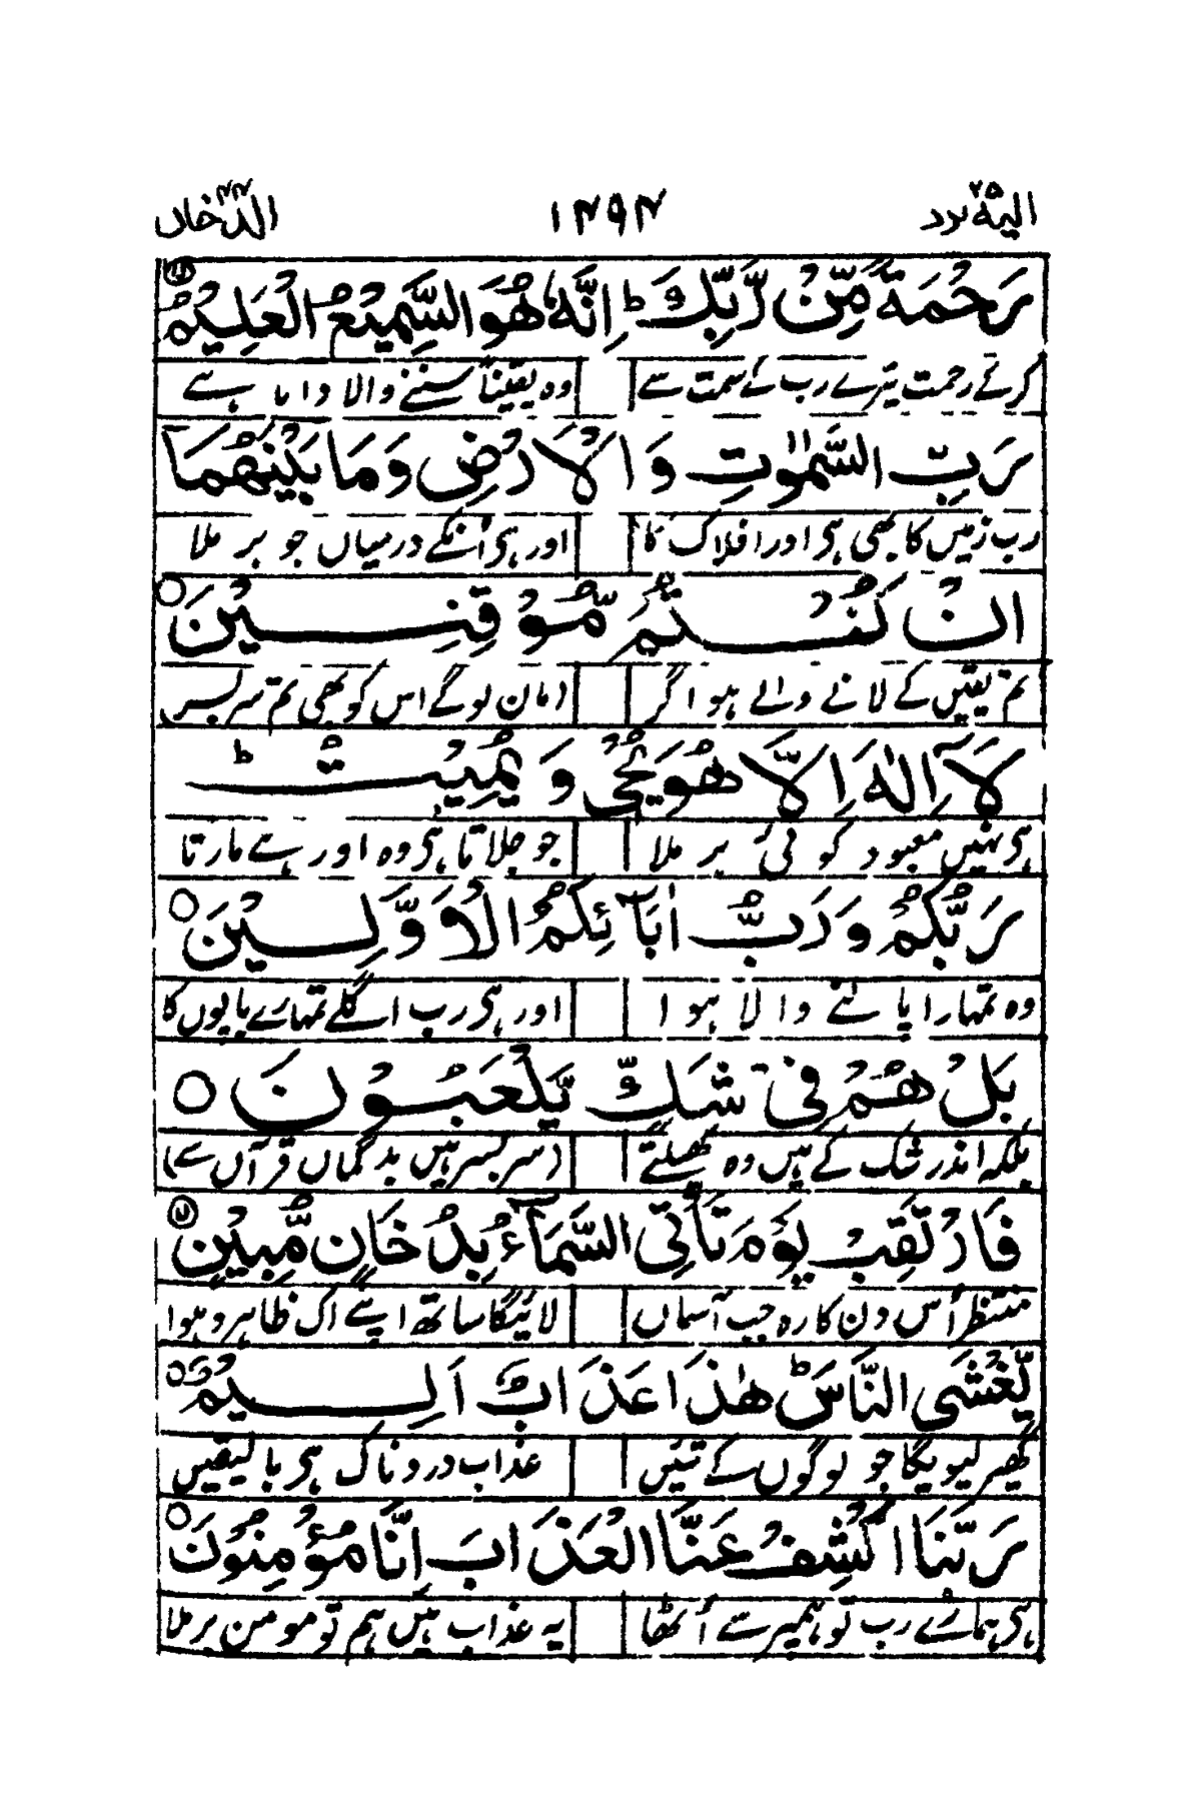 الیہ یرد ۲۵ ۱۴۹۴ الدخان ۴۴
رَحْمَةً مِّنْ رَّبِّكَ ؕ اِنَّهٗ هُوَ السَّمِيْعُ الْعَلِيْمُ ۙ
کرکے رحمت تیرے رب کے سمت سے وہ یقیناً سننے والا دانا ہے
رَبِّ السَّمٰوٰتِ وَ الْاَرْضِ وَمَا بَيْنَهُمَا
رب زمیں کا بھی ہی اور افلاک کا اور ہی اُنکے درمیاں جو بر ملا
اِنْ كُنْتُمْ مُّوْقِنِيْنَ ○
تم یقیں کے لانے والے ہو اگر (مان لوگے اس کو بھی تم سر بسر
لَاۤ اِلٰهَ اِلَّا هُوَ يُحْيٖ وَ يُمِيْتُ ؕ
ہی نہیں معبود کوئی بر ملا جو جلاتا ہی وہ اور ہے مارتا
رَبُّكُمْ وَ رَبُّ اٰبَآئِكُمُ الْاَوَّلِيْنَ ○
وہ تمہارا پالنے والا ہوا اور ہی رب اگلے تمہارے باپوں کا
بَلْ هُمْ فِیْ شَكٍّ يَّلْعَبُوْنَ ○
بلکہ اندر شک کے ہیں وہ کھیلتے (سر بسر ہیں بد گماں قرآں سے)
فَارْتَقِبْ يَوْمَ تَاْتِی السَّمَآءُ بِدُخَانٍ مُّبِيْنٍ ۙ
منتظر اُس دن کا رہ جب آسماں لائیگا ساتھ اپنے اک ظاہر دھواں
يَّغْشَی النَّاسَ ؕ هٰذَا عَذَابٌ اَلِيْمٌ ○
گھیر لیویگا جو لوگوں کے تئیں عذاب دردناک ہی بالیقیں
رَبَّنَا اكْشِفْ عَنَّا الْعَذَابَ اِنَّا مُؤْمِنُوْنَ ○
ہی ہمارے رب تو ہمپر سے اُٹھا یہ عذاب ہیں ہم تو مومن بر ملا